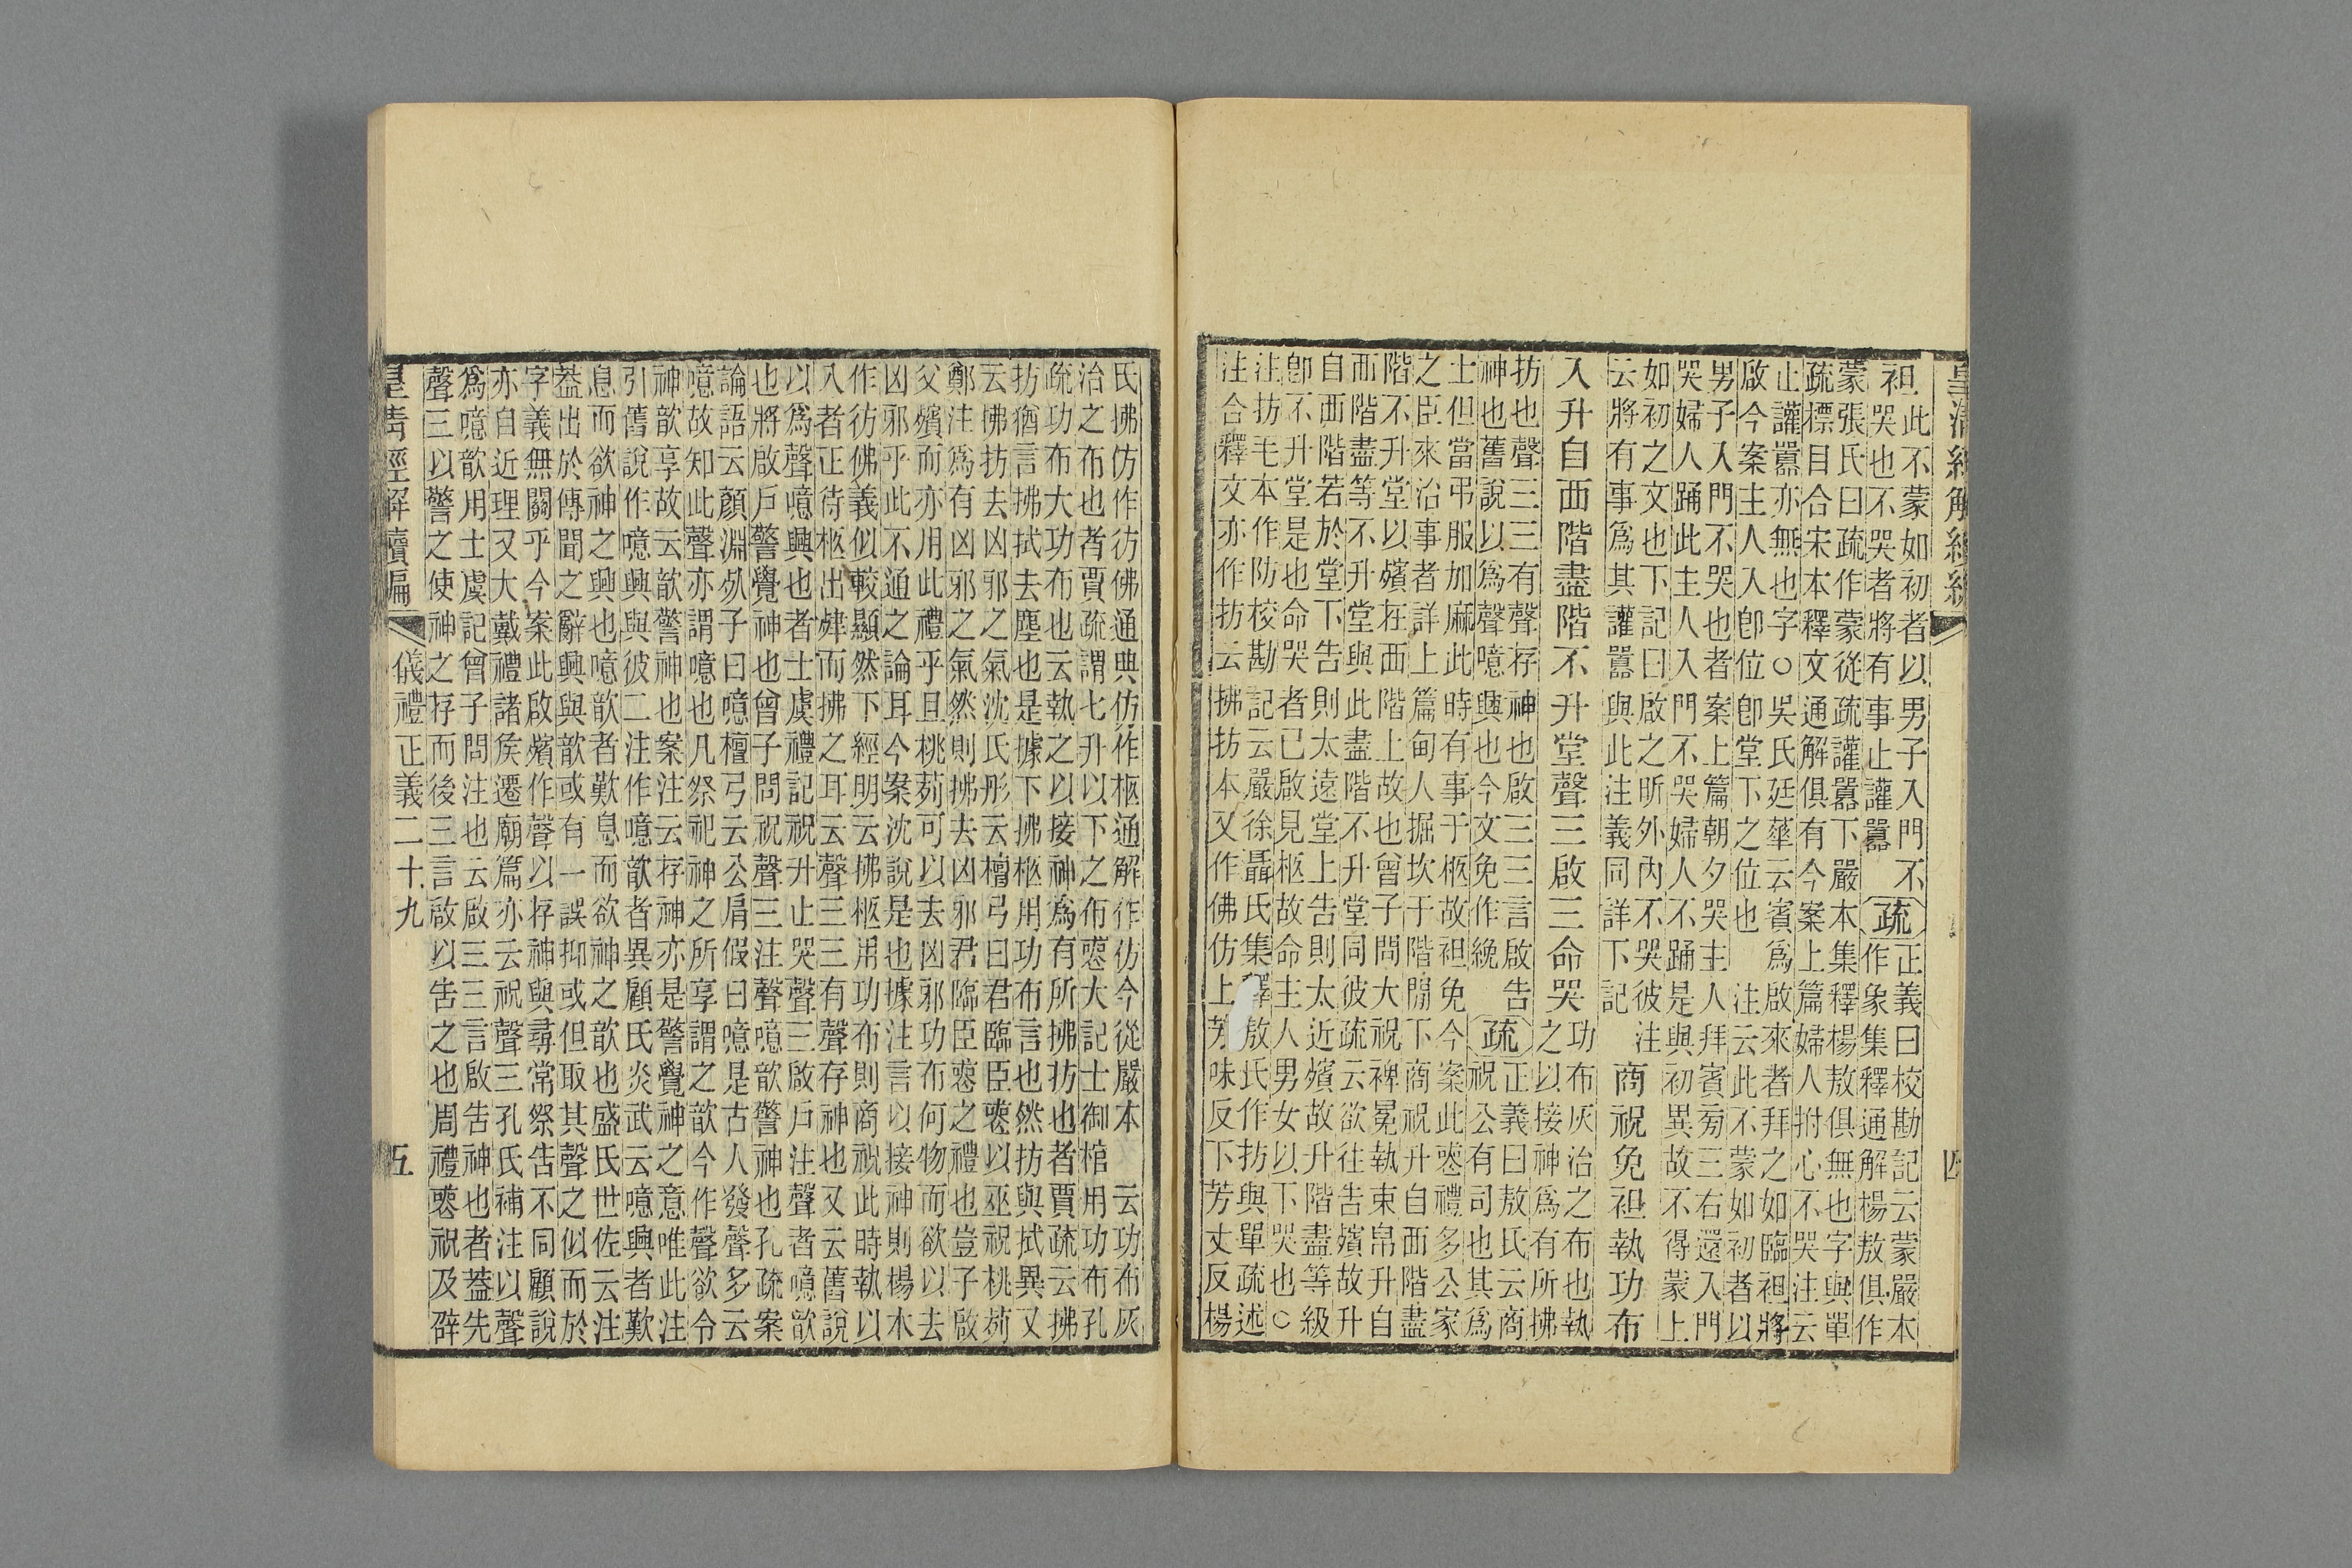 皇清經解續編 四
袒
此不蒙如初者以男子入門不
哭也不哭者將有事止讙囂
疏
正義曰校勘記云蒙嚴本
作象集釋通解楊敖俱作
蒙張氏曰疏作蒙從疏讙囂下嚴本集釋楊敖俱無也字與單
疏標目合宋本釋文通解俱有今案上篇婦人拊心不哭注云
止讙囂亦無也字○吳氏廷華云賓爲啟來者拜之如臨袒將
啟今案主人入卽位卽堂下之位也 注云此不蒙如初者以
男子入門不哭也者案上篇朝夕哭主人拜賓旁三右還入門
哭婦人踊此主人入門不哭婦人不踊是與初異故不得蒙上
如初之文也下記曰啟之昕外內不哭彼注
云將有事爲其讙囂與此注義同詳下記
商祝免袒執功布
入升自西階盡階不升堂聲三啟三命哭
功布灰治之布也執
之以接神爲有所拂
㧍也聲三三有聲存神也啟三三言啟告
神也舊說以爲聲噫興也今文免作絻
疏
正義曰敖氏云商
祝公有司也其爲
士但當弔服加麻此時有事于柩故袒免今案此喪禮多公家
之臣來治事者詳上篇甸人掘坎于階閒下商祝升自西階盡
階不升堂以殯在西階上故也曾子問大祝裨冕執束帛升自
西階盡等不升堂與此盡階不升堂同彼疏云欲往告殯故升
自西階若於堂下告則太遠堂上告則太近殯故升階盡等級
卽不升堂是也命哭者已啟見柩故命主人男女以下哭也○
注㧍毛本作防校勘記云嚴徐聶氏集釋敖氏作㧍與單疏述
注合釋文亦作㧍云拂㧍本又作佛仿上芳味反下芳丈反楊
氏拂仿作彷佛通典仿作柩通解作仿今從嚴本 云功布灰
治之布也者賈疏謂七升以下之布喪大記士御棺用功布孔
疏功布大功布也云執之以接神爲有所拂㧍也者賈疏云拂
㧍猶言拂拭去塵也是據下拂柩用功布言也然㧍與拭異又
云拂㧍去凶邪之氣沈氏彤云檀弓曰君臨臣喪以巫祝桃茢
鄭注爲有凶邪之氣然則拂去凶邪君臨臣喪之禮也豈子啟
父殯而亦用此禮乎且桃茢可以去凶邪功布何物而欲以去
凶邪乎此不通之論耳今案沈說是也據注言以接神則楊本
作彷佛義似較顯然下經明云拂柩用功布則商祝此時執以
入者正待柩出肂而拂之耳云聲三三有聲存神也又云舊說
以爲聲噫興也者士虞禮記祝升止哭聲三啟戶注聲者噫歆
也將啟戶警覺神也曾子問祝聲三注聲噫歆警神也孔疏案
論語云顏淵𣦸子曰噫檀弓云公肩假曰噫是古人發聲多云
噫故知此聲亦謂噫也凡祭祀神之所享謂之歆今作聲欲令
神歆享故云歆警神也案注云存神亦是警覺神之意唯此注
引舊說作噫興與彼二注作噫歆者異顧氏炎武云噫興者歎
息而欲神之興也噫歆者歎息而欲神之歆也盛氏世佐云注
蓋出於傳聞之辭興與歆或有一誤抑或但取其聲之似而於
字義無關乎今案此啟殯作聲以存神與尋常祭告不同顧說
亦自近理又大戴禮諸侯遷廟篇亦云祝聲三孔氏補注以聲
爲噫歆用士虞記曾子問注也云啟三三言啟告神也者蓋先
聲三以警之使神之存而後三言啟以告之也周禮喪祝及辟
皇清經解續編 儀禮正義二十九 五